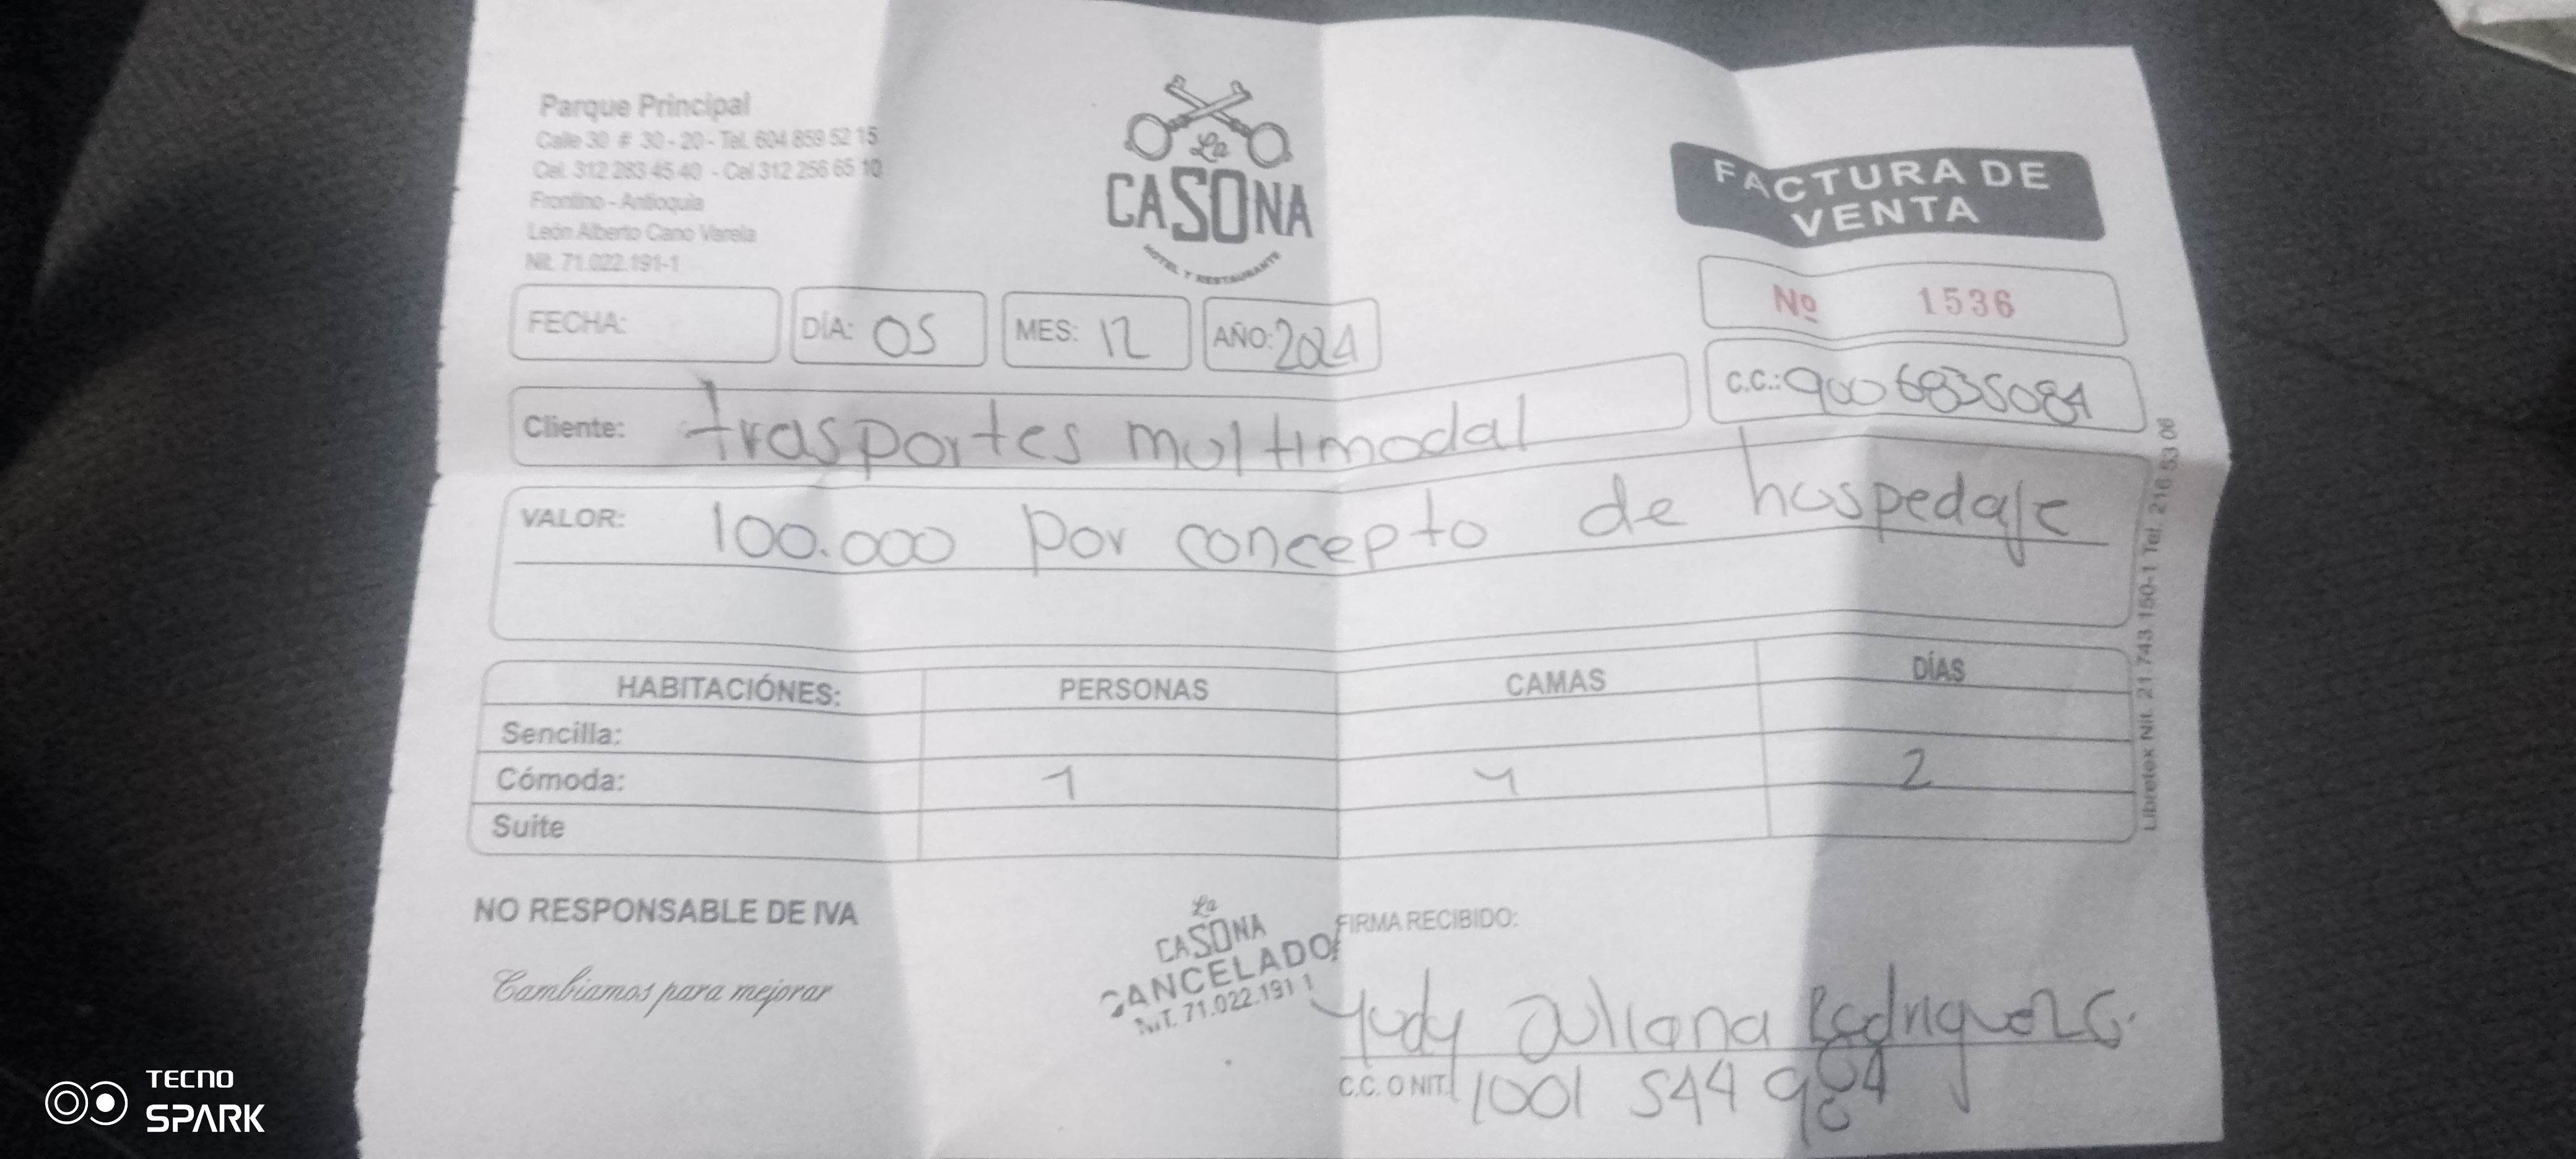 Parque Principal
Calle 30 # 30 - 20 - Tel. 604 859 52 15
Cel. 312 283 45 40 - Cel 312 256 65 10
Frontino - Antioquia
León Alberto Cano Varela
Nit. 71.022.191-1
La
CASONA
HOTEL Y RESTAURANTE
FACTURA DE
VENTA
Nº 1536
FECHA: DÍA: 05 MES: 12 AÑO: 2024
C.C.: 9006835084
Cliente: trasportes multimodal
VALOR: 100.000 por concepto de hospedaje
HABITACIÓNES: PERSONAS CAMAS DÍAS
Sencilla:
Cómoda: 1 1 2
Suite
NO RESPONSABLE DE IVA
Cambiamos para mejorar
La
CASONA
CANCELADO
NIT. 71.022.191 1
FIRMA RECIBIDO:
Yudy Juliana Rodriguez G.
C.C. O NIT. 1001 544
Libretox Nit. 21.743.150-1 Tel. 216 53 06
TECNO
SPARK